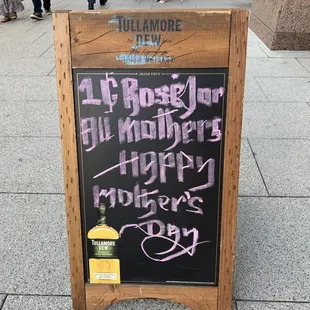 TULLAMORE
DEW
IRISH TRUE
1¢ Rosé for
All Mothers
Happy
Mother's
Day
TULLAMORE
DEW